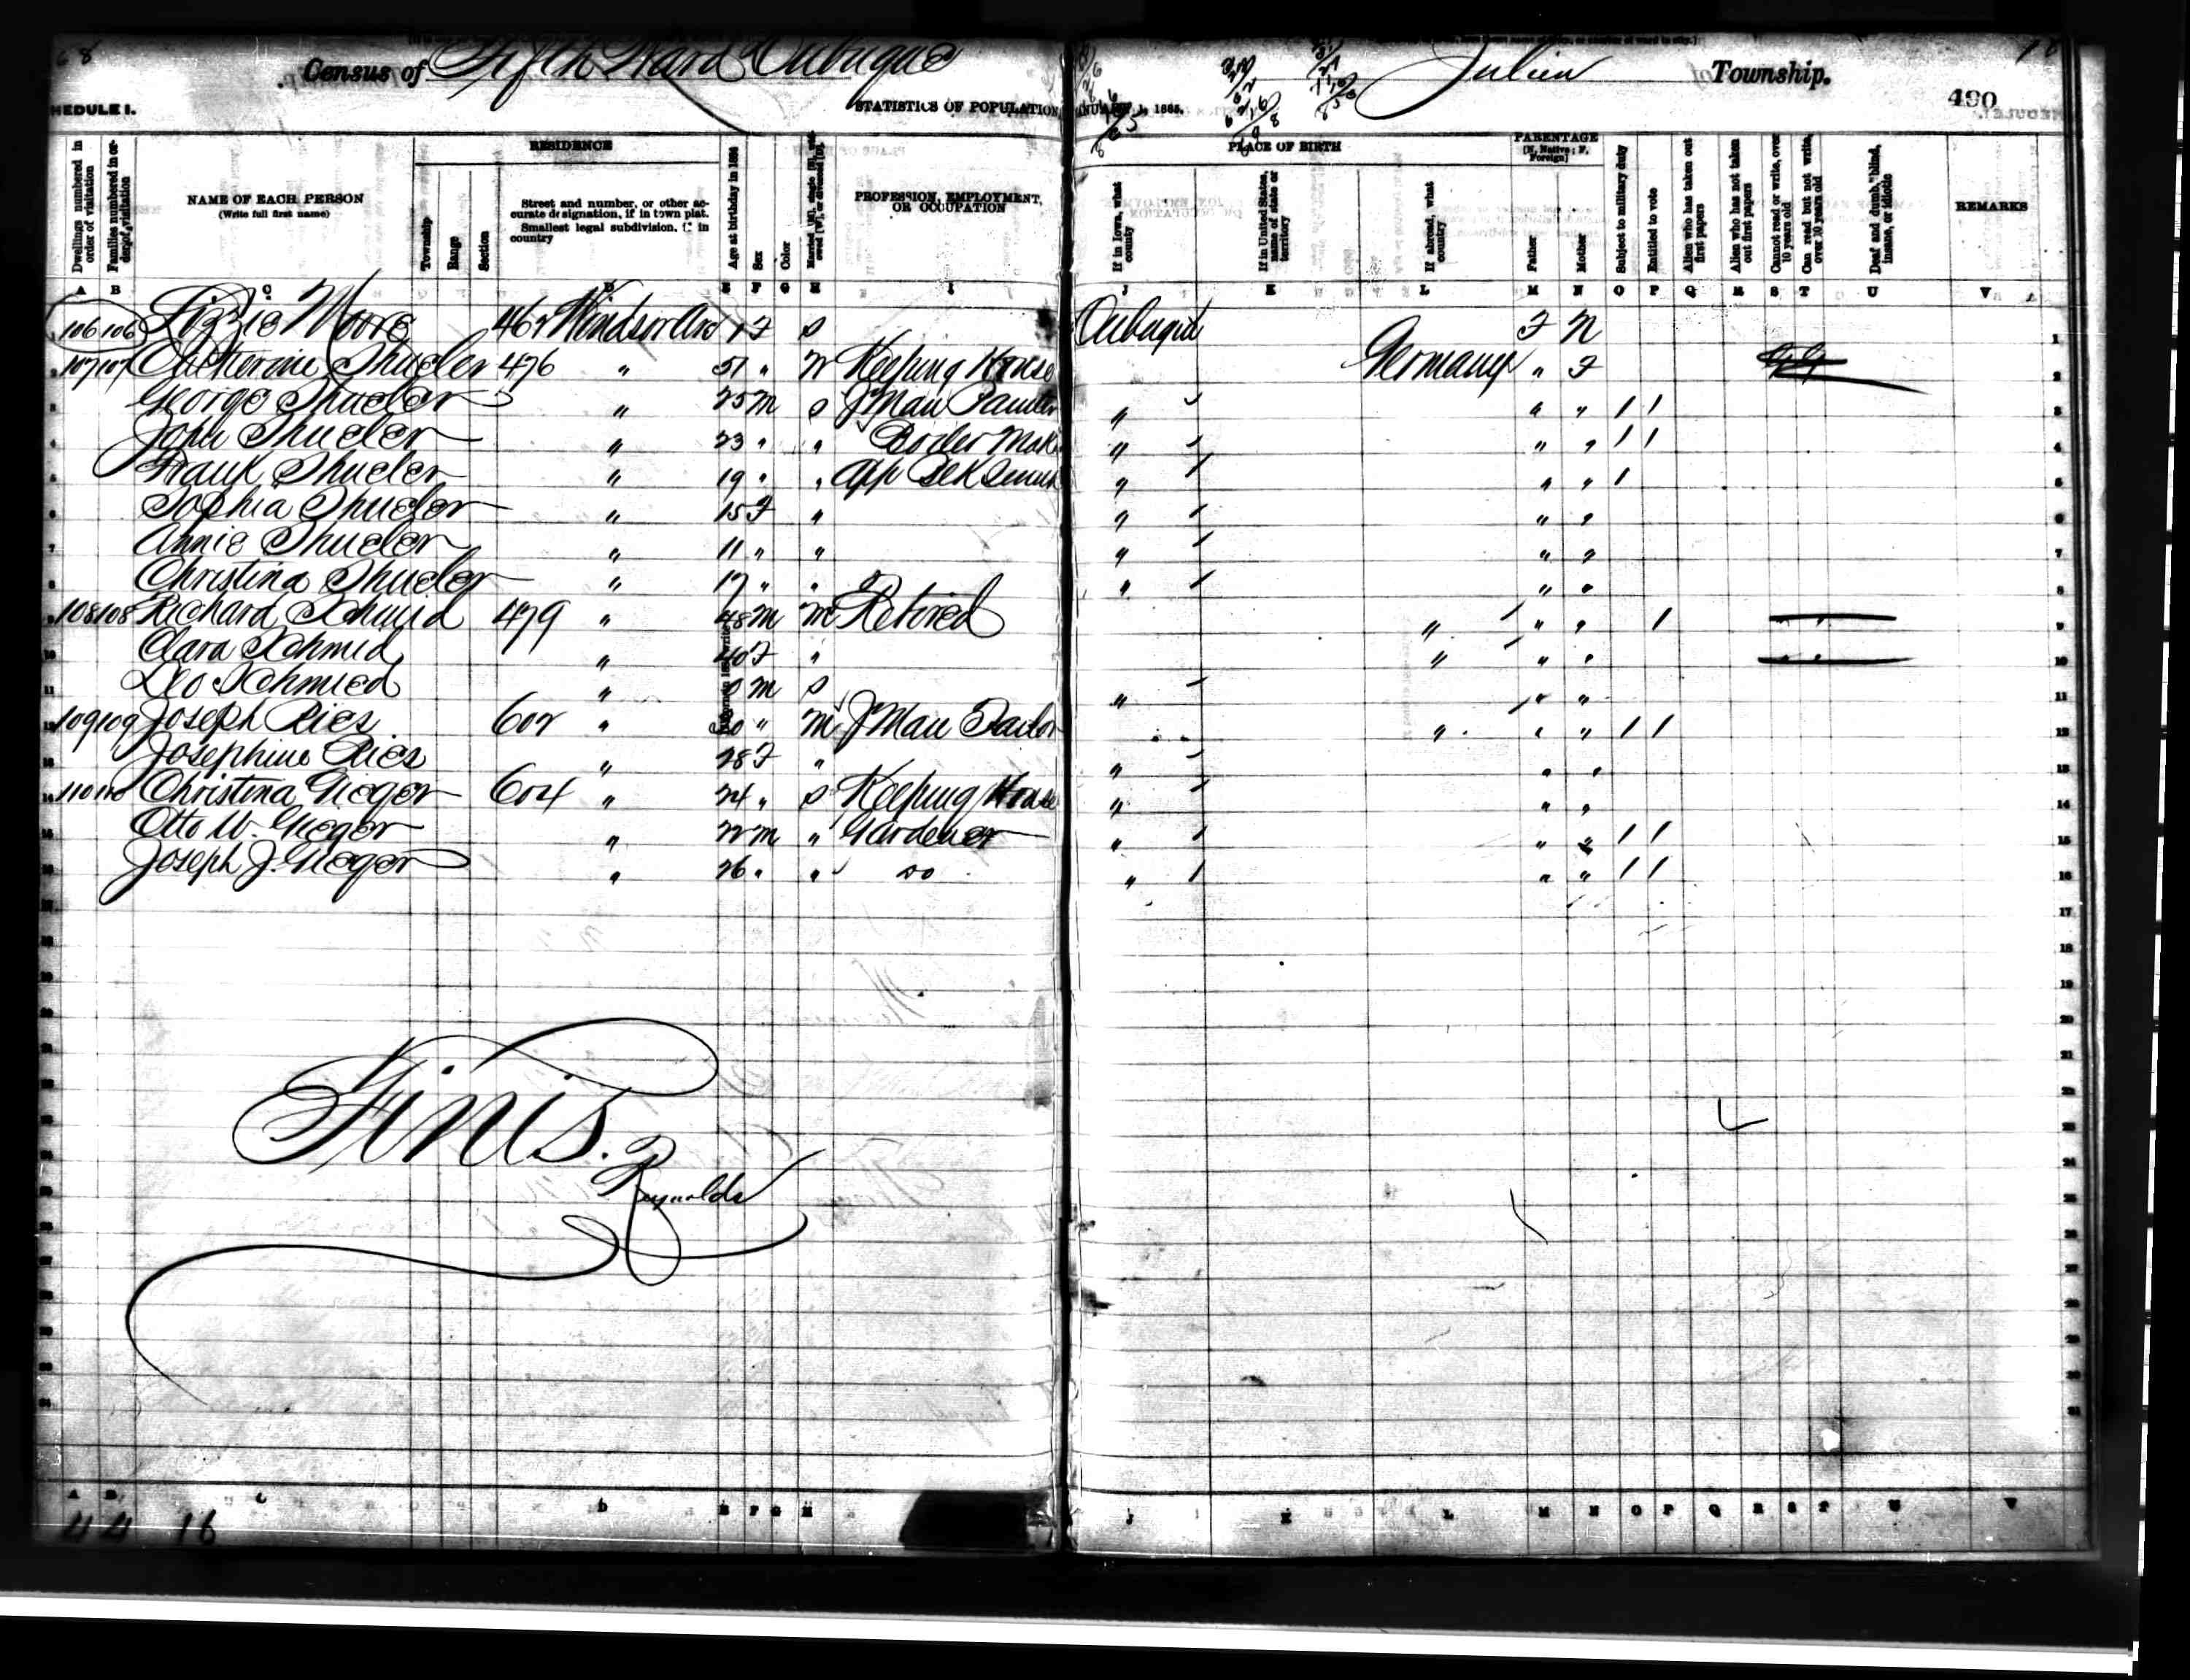 68
Census of Fifth Ward Dubuque
Julien Township.
490
HEDULE I.
STATISTICS OF POPULATION JANUARY 1, 1885.
RESIDENCE
PLACE OF BIRTH
PARENTAGE
[N, Native; F, Foreign]
Dwellings numbered in order of visitation
Families numbered in order of visitation
NAME OF EACH PERSON
(Write full first name)
Township
Range
Section
Street and number, or other accurate designation, if in town plat. Smallest legal subdivision, if in country
Age at birthday in 1884
Sex
Color
Married [M], single [S], widowed [W], or divorced [D].
PROFESSION, EMPLOYMENT, OR OCCUPATION
If in Iowa, what county
If in United States, name of state or territory
If abroad, what country
Father
Mother
Subject to military duty
Entitled to vote
Alien who has taken out first papers
Alien who has not taken out first papers
Cannot read or write, over 10 years old
Can read but not write, over 10 years old
Deaf and dumb, blind, insane, or idiotic
REMARKS
A B C D E F G H I J K L M N O P Q R S T U V
1 106 106 Lizzie Moore 462 Windsor Ave F S Dubuque F N 1
2 107 107 Catherine Shueler 476 " 51 " W Keeping House Germany " F 2
3 George Shueler " 25 M S J Man Painter " " " 1 1 3
4 John Shueler " 23 " " Boiler Mak " " " 1 1 4
5 Frank Shueler " 19 " " App Blk Smith " " " 1 5
6 Sophia Shueler " 15 F " " " " 6
7 Annie Shueler " 11 " " " " " 7
8 Christina Shueler " 17 " " " " " 8
9 108 108 Richard Schmid 479 " 48 M M Retired " " " 1 9
10 Clara Schmid " 40 F " " " " 10
11 Leo Schmied " M S " " " 11
12 109 109 Joseph Ries 602 " 30 " M J Man Tailor " " " 1 1 12
13 Josephine Ries " 28 F " " " " 13
14 110 110 Christina Gieger 604 " 24 " S Keeping House " " " 14
15 Otto W. Gieger " 22 M " Gardener " " " 1 1 15
16 Joseph J. Gieger " 26 " " do " " " 1 1 16
17
18
19
20
21
22
23
24
25
26
27
28
29
30
31
Finis.
Reynolds
A B C D E F G H J K L M N O P Q R S T U V
4 4 16